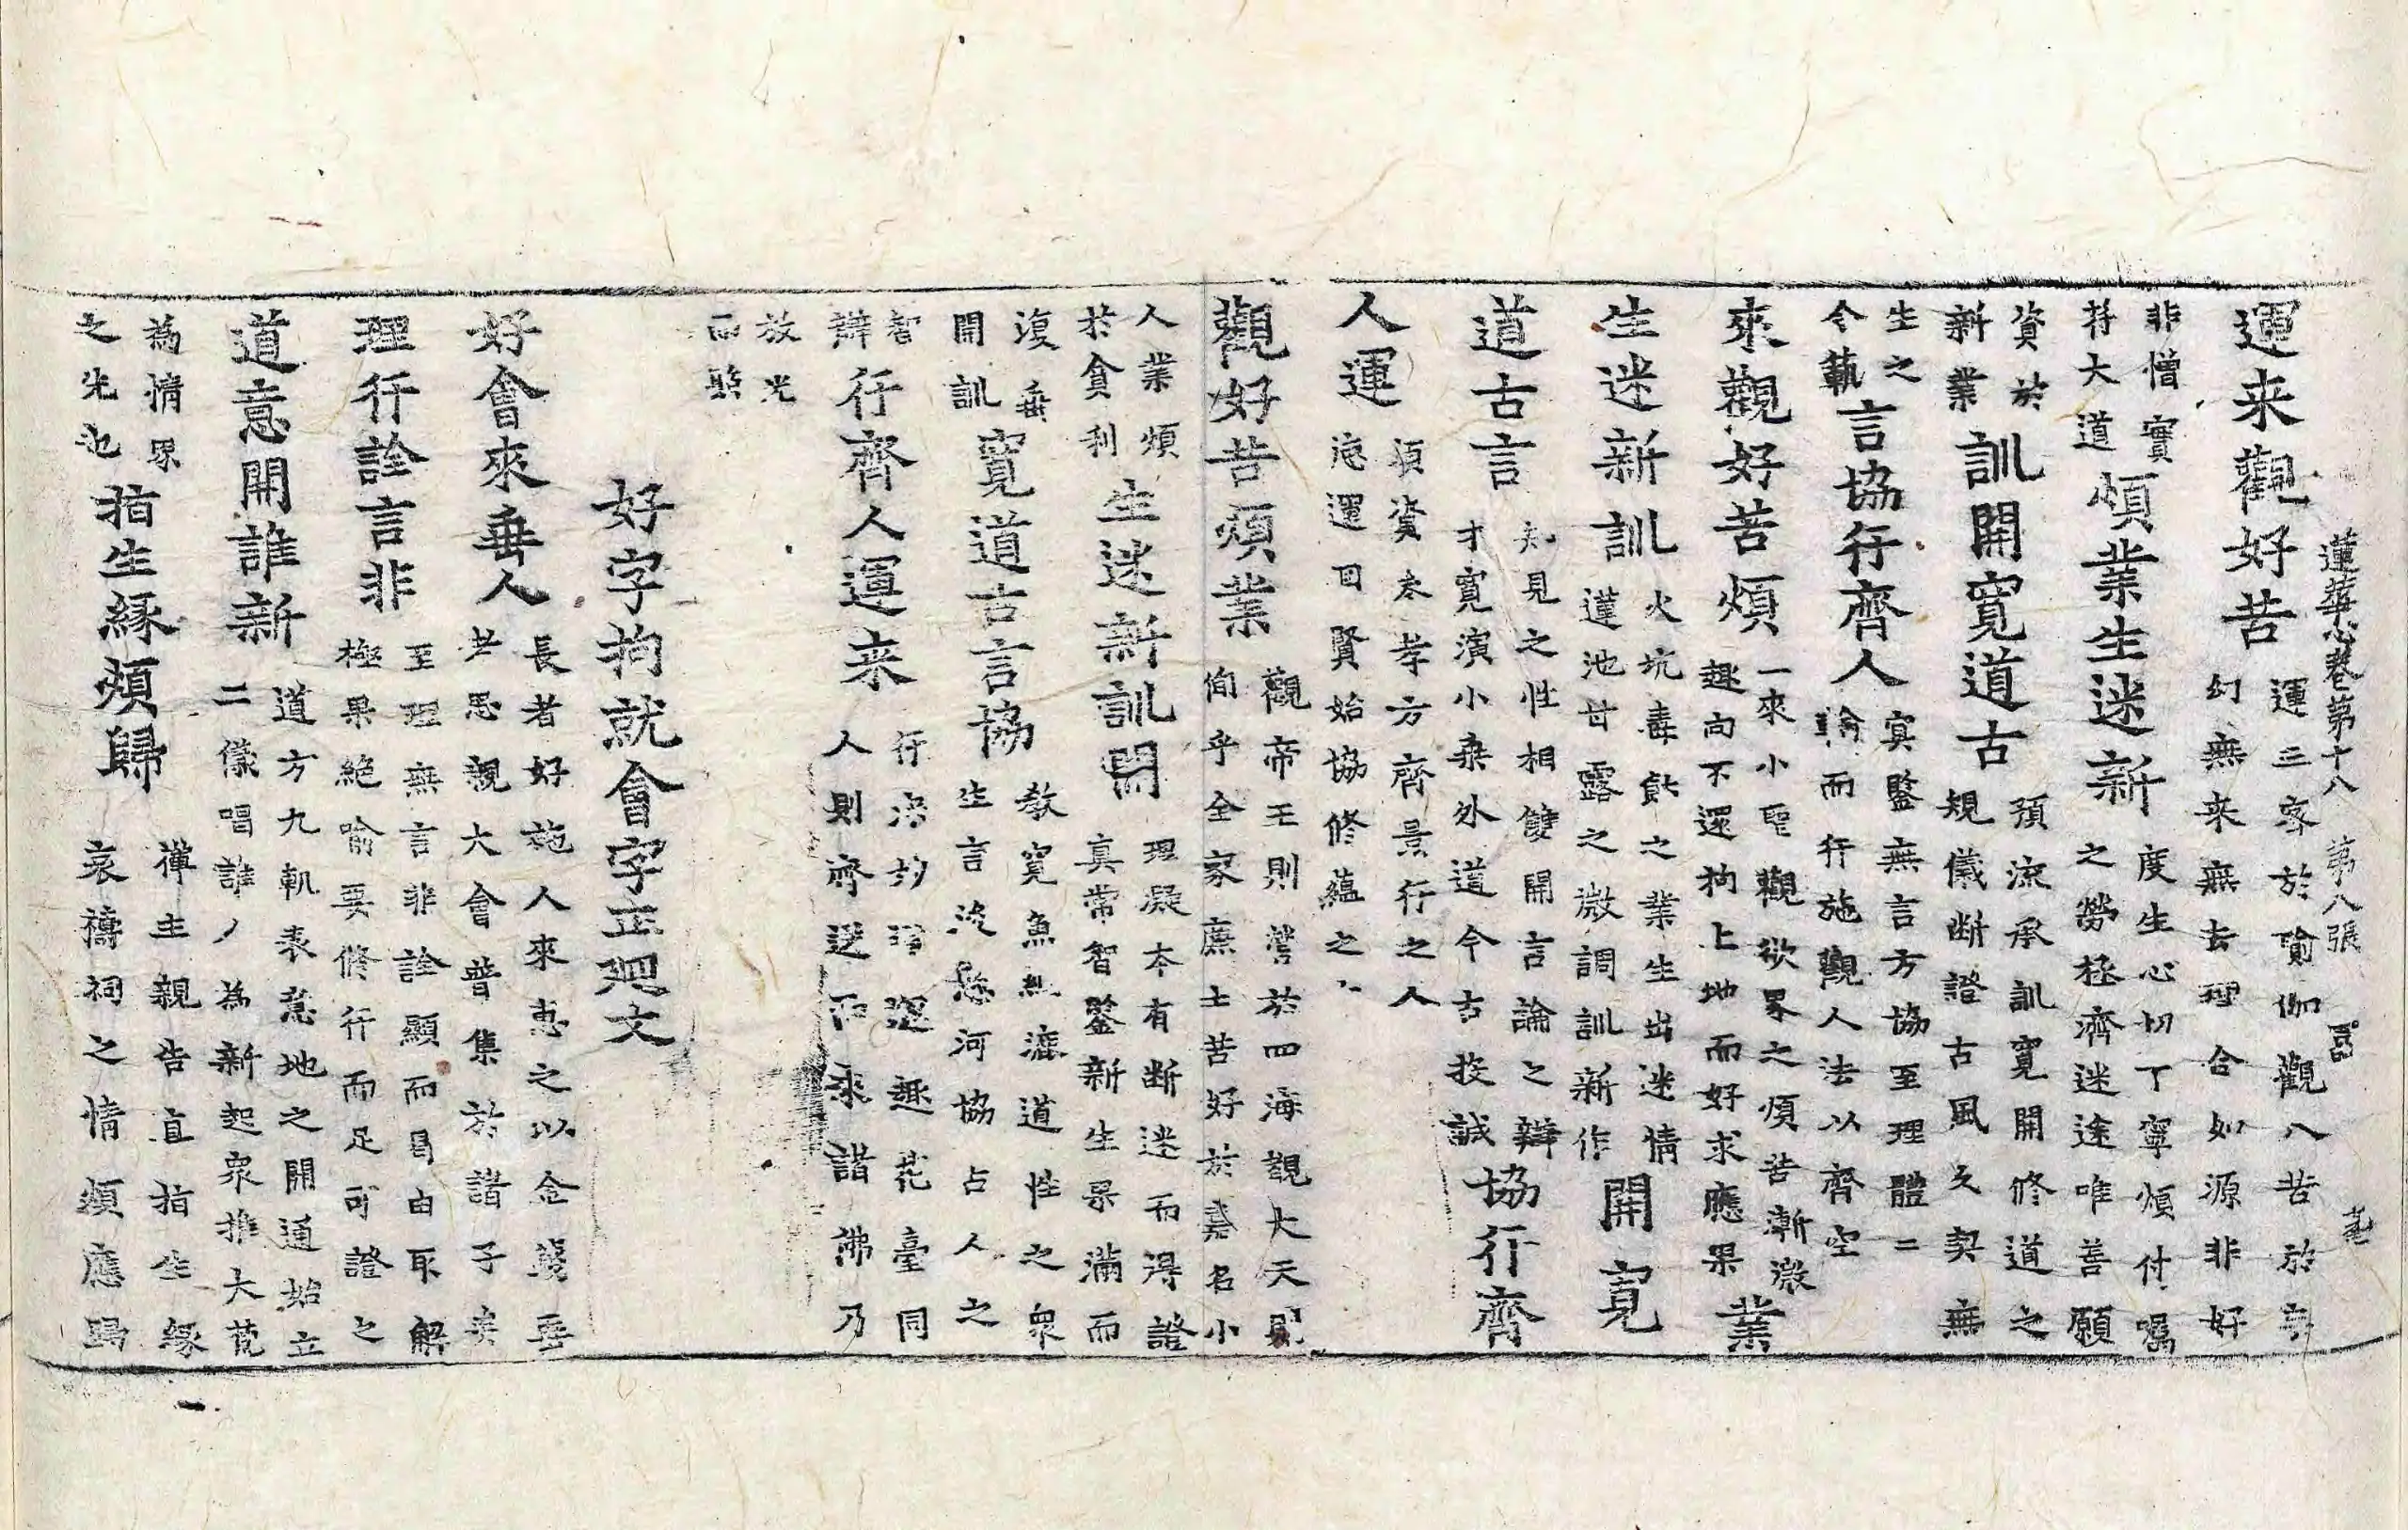 蓮華心卷第十八 第八張
運来觀好苦
運三客於瑜伽觀八苦於
幻無来無去理合如源非好
非憎實
持大道
煩業生迷新
度生心切丁寧煩付囑
之勞極濟迷途唯善願
資於
新業
訓開寬道古
預流承訓寬開修道之
規儀断證古風久契無
生之
令執
言協行齊人
寞鑒無言方協至理體二
輪而行施觀人法以齊空
來觀好苦煩
一來小聖觀欲界之煩苦漸微
趣向不還拘上地而好求應果
業
生迷新訓
火坑毒餤之業生出迷情
蓮池甘露之微調訓新作
開寬
道古言
知見之性相雙開言論之辯
才寬演小乗外道今古投誠
協行齊
人運
須資參孝方齊景行之人
宛運回賢始協修蘊之
觀好苦煩業
觀帝王則營於四海觀大天
侚乎全家庶士苦好於嘉名小
人業煩
於貪利
生迷新訓開
理凝本有断迷而得證
真常智鑒新生果滿而
復垂
開訓
寬道古言協
教寬魚 漉道性之衆
生言 懸河協占人之
智
辯
行齊人運来
行 趣花臺同
人則齊 而來諸佛乃
放光
而照
好字拘就會字正迴文
好會來垂人
長者好施人來惠之以金 垂
慈思觀大會普集於諸子
理行詮言非
至理無言非詮顯而曷由取解
極果絶喻要修行而足可證之
道意開誰新
道方九軌表意地之開通始立
二儀唱誰人為新起衆推大
為情界
之先也
指生緣煩歸
禪主親告直指生緣
哀禱祠之情煩應歸